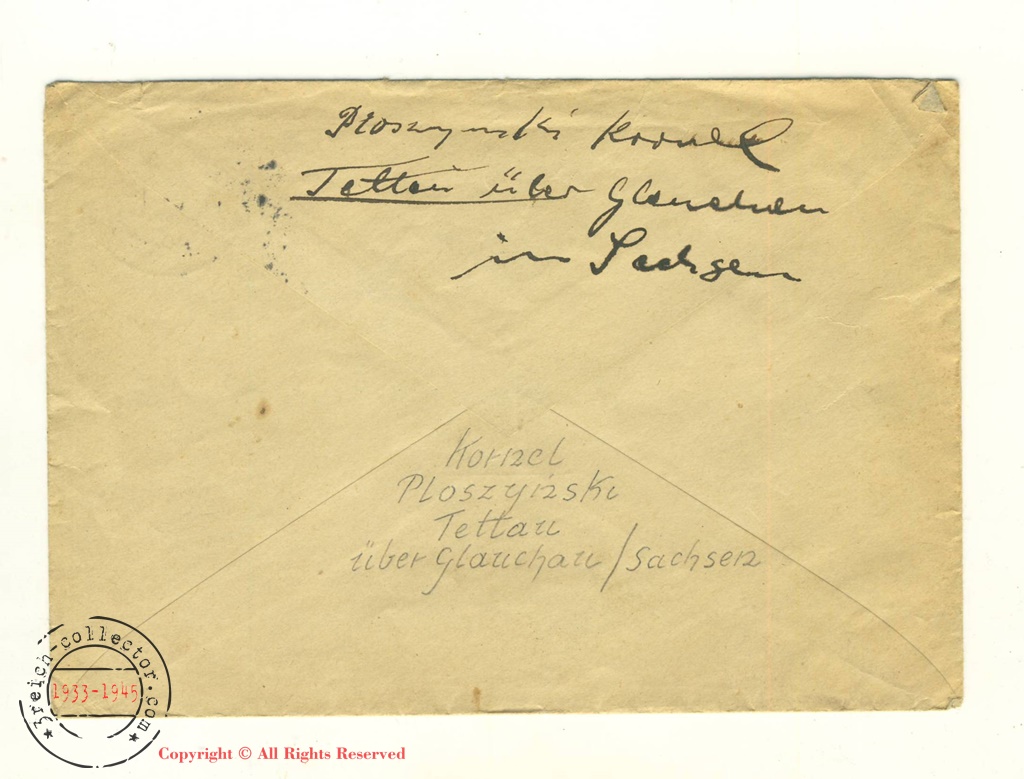 Płoszynski Kornel
Tettau über Glauchau
in Sachsen
Kornel
Ploszyński
Tettau
über Glauchau / Sachsen
*3reich-collector.com*
1933-1945
Copyright © All Rights Reserved